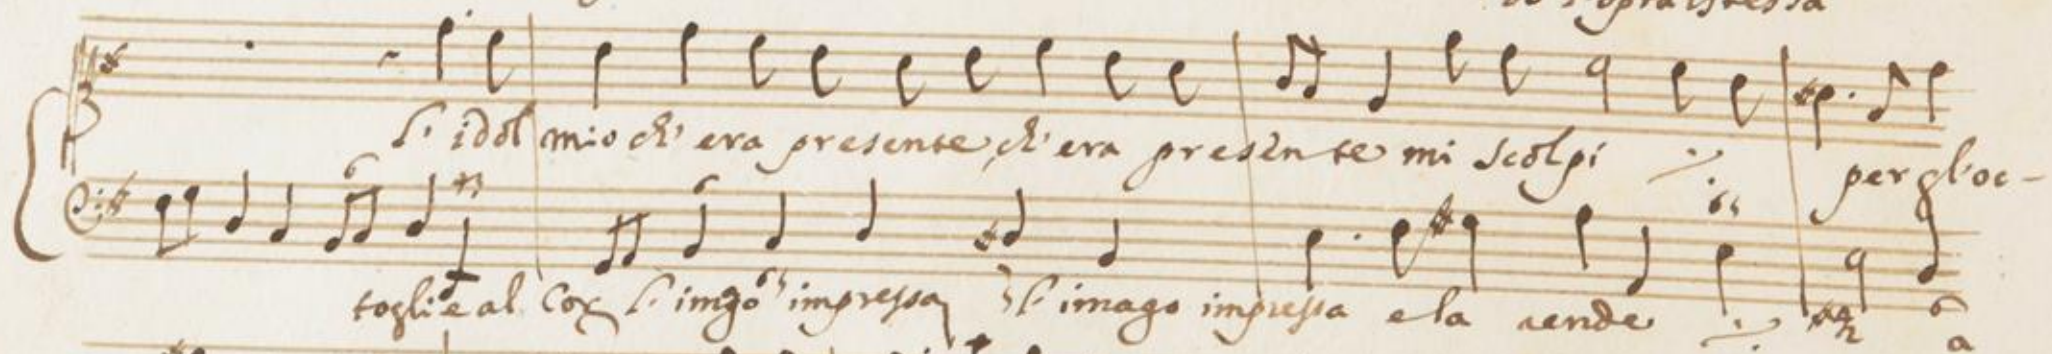 sopra istessa
L' idol mio ch' era presente ch' era presente mi scolpi per gl' oc-
6
6
toglie al Cor L' imgo impressa L' imago impressa e la rende a